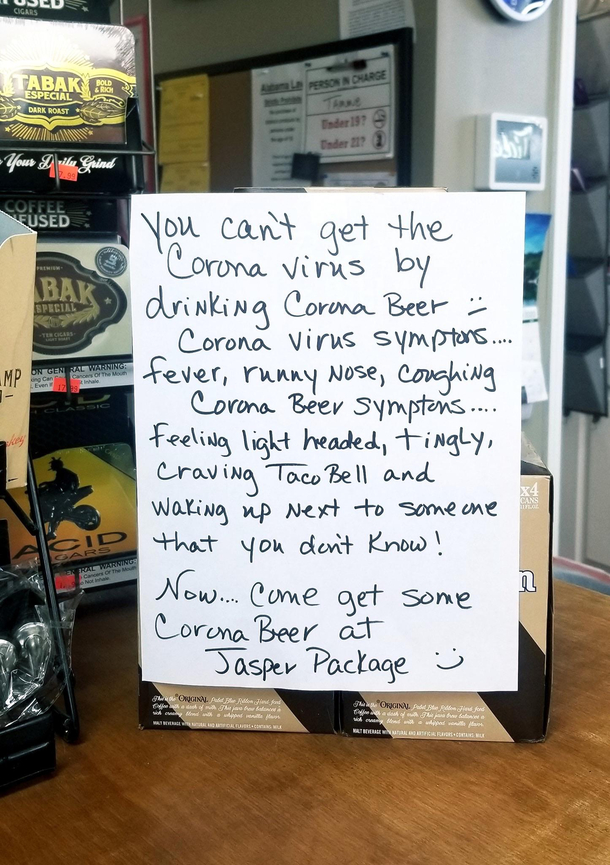 FUSED
CIGARS
TABAK
ESPECIAL
DARK ROAST
BOLD
& RICH
Your Daily Grind
COFFEE
NFUSED
PREMIUM
ABAK
ESPECIAL
GENERAL WARNING:
CLASSIC
AMP
ACID
GARS
Alabama La
PERSON IN CHARGE
Tammie
Under 19?
Under 21?
Tide
You can't get the
Corona virus by
drinking Corona Beer :)
Corona virus symptons....
fever, runny Nose, Coughing
Corona Beer symptons....
feeling light headed, tingly,
craving Taco Bell and
waking up Next to someone
that you don't know!
Now.... Come get some
Corona Beer at
Jasper Package :)
x4
CANS
This is the ORIGINAL Pabst Blue Ribbon Hard
Coffee with a dash of milk. This java brew balances a
rich creamy blend with a whipped vanilla flavor.
MALT BEVERAGE WITH NATURAL AND ARTIFICIAL FLAVORS • CONTAINS: MILK
This is the ORIGINAL Pabst Blue Ribbon Hard
Coffee with a dash of milk. This java brew balances a
rich creamy blend with a whipped vanilla flavor.
MALT BEVERAGE WITH NATURAL AND ARTIFICIAL FLAVORS • CONTAINS: MILK